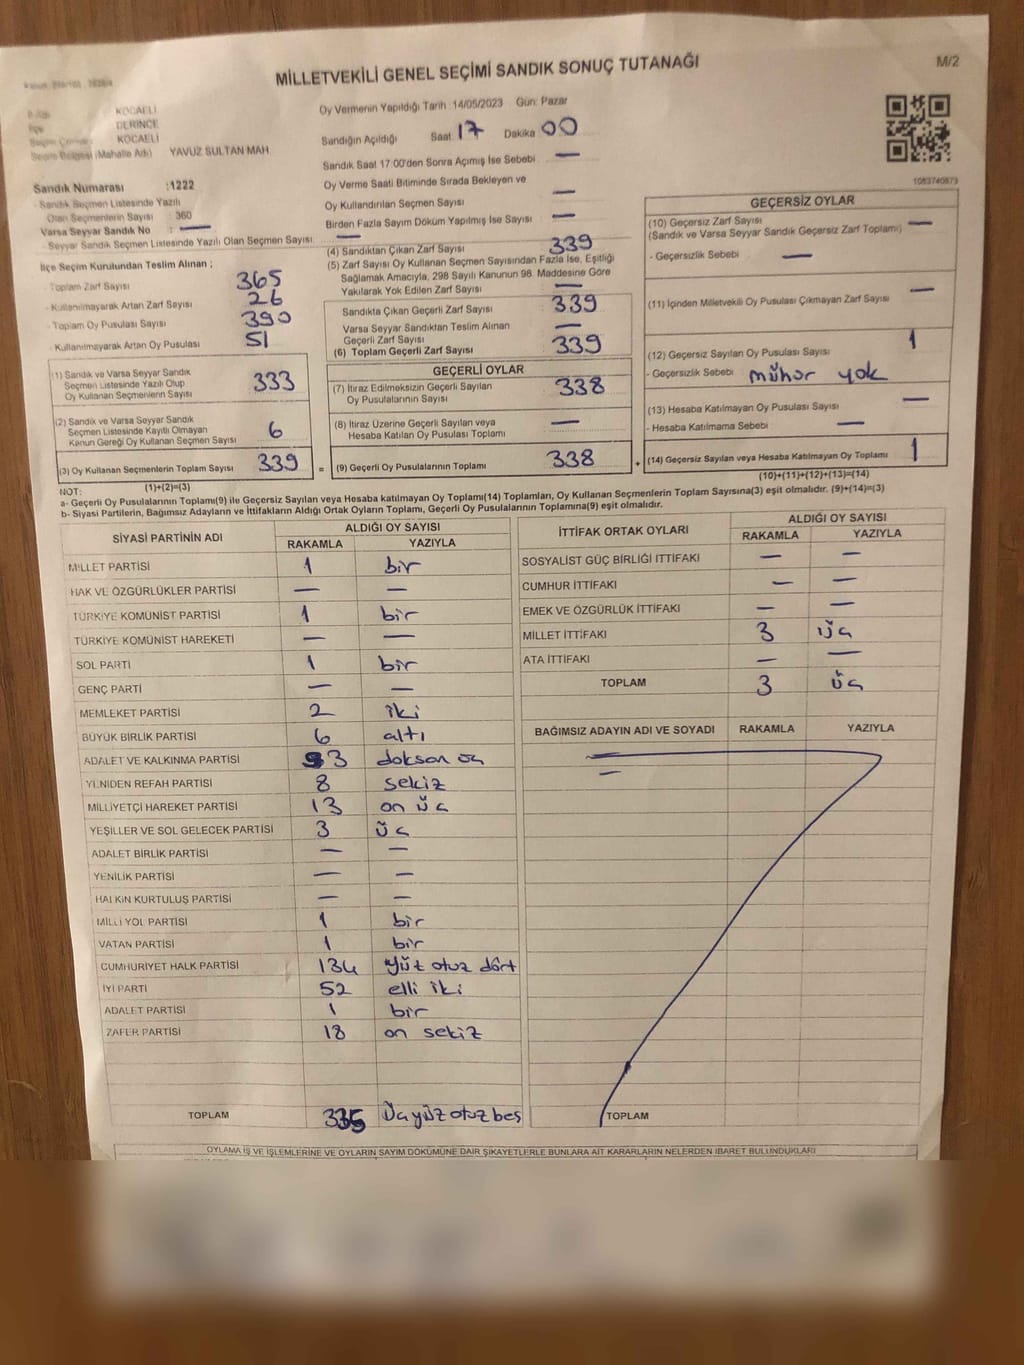 MİLLETVEKİLİ GENEL SEÇİMİ SANDIK SONUÇ TUTANAĞI
M/2
KOCAELİ
İlçe DERİNCE
KOCAELİ
Seçim Bölgesi (Mahalle Adı) YAVUZ SULTAN MAH.
Oy Vermenin Yapıldığı Tarih : 14/05/2023 Gün: Pazar
Sandığın Açıldığı Saat 17 Dakika 00
Sandık Saat 17:00'den Sonra Açımış İse Sebebi —
Oy Verme Saati Bitiminde Sırada Bekleyen ve
Oy Kullandırılan Seçmen Sayısı —
Birden Fazla Sayım Döküm Yapılmış İse Sayısı —
1083740873
Sandık Numarası :1222
- Sandık Seçmen Listesinde Yazılı
Olan Seçmenlerin Sayısı : 360
Varsa Seyyar Sandık No : —
- Seyyar Sandık Seçmen Listesinde Yazılı Olan Seçmen Sayısı: —
İlçe Seçim Kurulundan Teslim Alınan ;
- Toplam Zarf Sayısı 365
- Kullanılmayarak Artan Zarf Sayısı 26
- Toplam Oy Pusulası Sayısı 390
- Kullanılmayarak Artan Oy Pusulası 51
(1) Sandık ve Varsa Seyyar Sandık
Seçmen Listesinde Yazılı Olup
Oy Kullanan Seçmenlerin Sayısı 333
(2) Sandık ve Varsa Seyyar Sandık
Seçmen Listesinde Kayıtlı Olmayan
Kanun Gereği Oy Kullanan Seçmen Sayısı 6
(3) Oy Kullanan Seçmenlerin Toplam Sayısı 339
(1)+(2)=(3)
(4) Sandıktan Çıkan Zarf Sayısı 339
(5) Zarf Sayısı Oy Kullanan Seçmen Sayısından Fazla İse, Eşitliği
Sağlamak Amacıyla, 298 Sayılı Kanunun 98. Maddesine Göre
Yakılarak Yok Edilen Zarf Sayısı —
Sandıkta Çıkan Geçerli Zarf Sayısı 339
Varsa Seyyar Sandıktan Teslim Alınan
Geçerli Zarf Sayısı —
(6) Toplam Geçerli Zarf Sayısı 339
GEÇERLİ OYLAR
(7) İtiraz Edilmeksizin Geçerli Sayılan
Oy Pusulalarının Sayısı 338
(8) İtiraz Üzerine Geçerli Sayılan veya
Hesaba Katılan Oy Pusulası Toplamı —
= (9) Geçerli Oy Pusulalarının Toplamı 338
GEÇERSİZ OYLAR
(10) Geçersiz Zarf Sayısı
(Sandık ve Varsa Seyyar Sandık Geçersiz Zarf Toplamı) —
- Geçersizlik Sebebi —
(11) İçinden Milletvekili Oy Pusulası Çıkmayan Zarf Sayısı —
(12) Geçersiz Sayılan Oy Pusulası Sayısı 1
- Geçersizlik Sebebi mühür yok
(13) Hesaba Katılmayan Oy Pusulası Sayısı —
- Hesaba Katılmama Sebebi —
+ (14) Geçersiz Sayılan veya Hesaba Katılmayan Oy Toplamı 1
(10)+(11)+(12)+(13)=(14)
NOT:
a- Geçerli Oy Pusulalarının Toplamı(9) ile Geçersiz Sayılan veya Hesaba katılmayan Oy Toplamı(14) Toplamları, Oy Kullanan Seçmenlerin Toplam Sayısına(3) eşit olmalıdır. (9)+(14)=(3)
b- Siyasi Partilerin, Bağımsız Adayların ve İttifakların Aldığı Ortak Oyların Toplamı, Geçerli Oy Pusulalarının Toplamına(9) eşit olmalıdır.
SİYASİ PARTİNİN ADI ALDIĞI OY SAYISI
RAKAMLA YAZIYLA
MİLLET PARTİSİ 1 bir
HAK VE ÖZGÜRLÜKLER PARTİSİ — —
TÜRKİYE KOMÜNİST PARTİSİ 1 bir
TÜRKİYE KOMÜNİST HAREKETİ — —
SOL PARTİ 1 bir
GENÇ PARTİ — —
MEMLEKET PARTİSİ 2 iki
BÜYÜK BİRLİK PARTİSİ 6 altı
ADALET VE KALKINMA PARTİSİ 93 doksan üç
YENİDEN REFAH PARTİSİ 8 sekiz
MİLLİYETÇİ HAREKET PARTİSİ 13 on üç
YEŞİLLER VE SOL GELECEK PARTİSİ 3 üç
ADALET BİRLİK PARTİSİ — —
YENİLİK PARTİSİ — —
HALKIN KURTULUŞ PARTİSİ — —
MİLLİ YOL PARTİSİ 1 bir
VATAN PARTİSİ 1 bir
CUMHURİYET HALK PARTİSİ 134 yüz otuz dört
İYİ PARTİ 52 elli iki
ADALET PARTİSİ 1 bir
ZAFER PARTİSİ 18 on sekiz
TOPLAM 335 Üçyüz otuz beş
İTTİFAK ORTAK OYLARI ALDIĞI OY SAYISI
RAKAMLA YAZIYLA
SOSYALİST GÜÇ BİRLİĞİ İTTİFAKI — —
CUMHUR İTTİFAKI — —
EMEK VE ÖZGÜRLÜK İTTİFAKI — —
MİLLET İTTİFAKI 3 üç
ATA İTTİFAKI — —
TOPLAM 3 üç
BAĞIMSIZ ADAYIN ADI VE SOYADI RAKAMLA YAZIYLA
—
TOPLAM
OYLAMA İŞ VE İŞLEMLERİNE VE OYLARIN SAYIM DÖKÜMÜNE DAİR ŞİKAYETLERLE BUNLARA AİT KARARLARIN NELERDEN İBARET BULUNDUKLARI